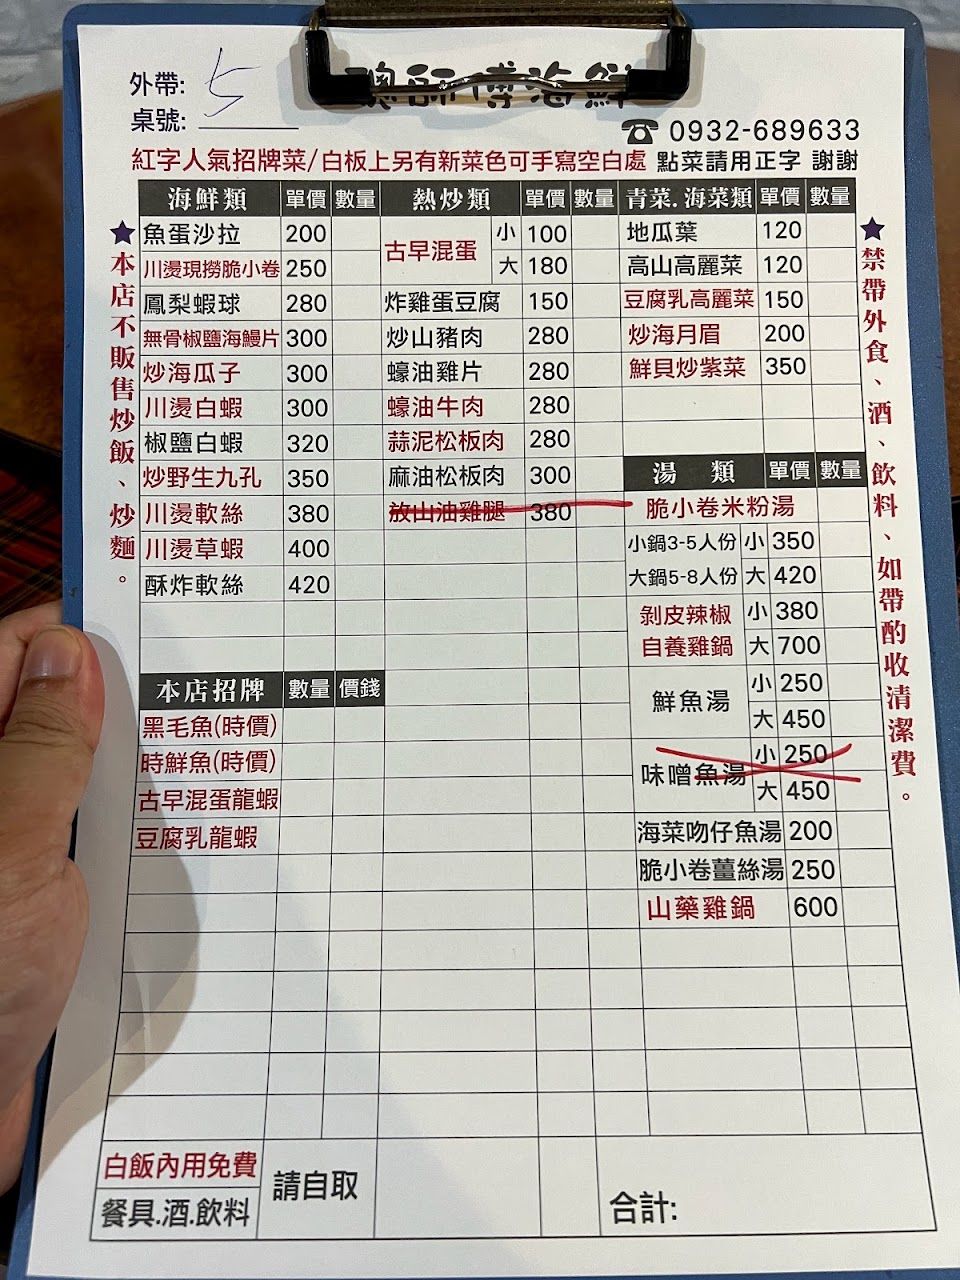 外帶: 5
聰師傅海鮮
桌號:
☎ 0932-689633
紅字人氣招牌菜/白板上另有新菜色可手寫空白處 點菜請用正字 謝謝
★本店不販售炒飯、炒麵。
海鮮類 單價 數量
魚蛋沙拉 200
川燙現撈脆小卷 250
鳳梨蝦球 280
無骨椒鹽海鰻片 300
炒海瓜子 300
川燙白蝦 300
椒鹽白蝦 320
炒野生九孔 350
川燙軟絲 380
川燙草蝦 400
酥炸軟絲 420
本店招牌 數量 價錢
黑毛魚(時價)
時鮮魚(時價)
古早混蛋龍蝦
豆腐乳龍蝦
熱炒類 單價 數量
古早混蛋 小 100
大 180
炸雞蛋豆腐 150
炒山豬肉 280
蠔油雞片 280
蠔油牛肉 280
蒜泥松板肉 280
麻油松板肉 300
放山油雞腿 380
青菜.海菜類 單價 數量
地瓜葉 120
高山高麗菜 120
豆腐乳高麗菜 150
炒海月眉 200
鮮貝炒紫菜 350
湯 類 單價 數量
脆小卷米粉湯
小鍋3-5人份 小 350
大鍋5-8人份 大 420
剝皮辣椒 小 380
自養雞鍋 大 700
鮮魚湯 小 250
大 450
味噌魚湯 小 250
大 450
海菜吻仔魚湯 200
脆小卷薑絲湯 250
山藥雞鍋 600
★禁帶外食、酒、飲料、如帶酌收清潔費。
白飯內用免費
餐具.酒.飲料
請自取
合計: